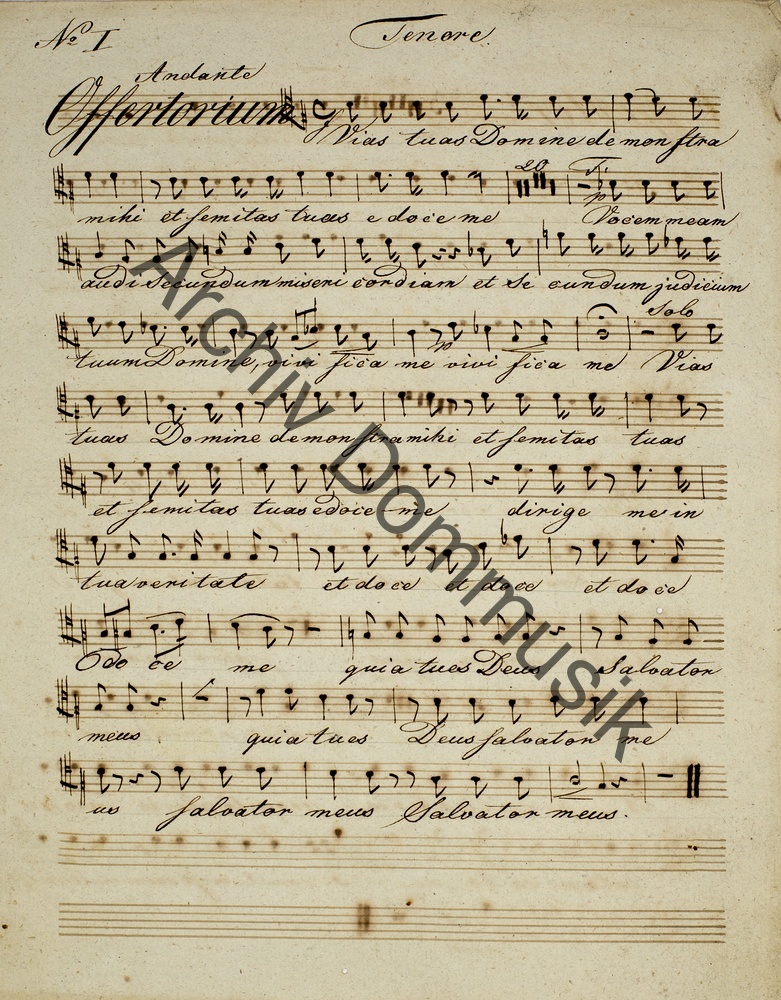 No I
Tenore
Andante
Offertorium
Vias tuas Domine de mon stra
20 T. p
mihi et semitas tuas e do ce me Vocem meam
audi secundum miseri cordiam et se cundum judicium
Solo
tuum Domine, vivi fica me vivi fica me Vias
tuas Domine demon stra mihi et semitas tuas
et semitas tuas edoce me dirige me in
tua veritate et do ce et doce et do ce
do ce me quia tu es Deus Salvator
meus quia tu es Deus salvator me
us salvator meus Salvator meus.
Archiv Dommusik